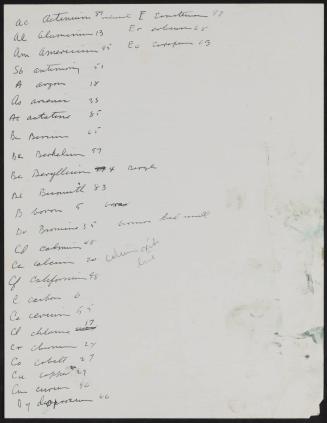 Ac Actinium 89 E Einsteinium
Al Aluminium 13 Er erbium 68
Am Americium 95 Eu europium 63
Sb antimony 51
A argon 18
As arsenic 33
At astatine 85
Ba Barium
Berkelium 97
Be Beryllium 4 beryl
Bismuth 83
B boron 5
Bromine 35 bromos bad smell
Cd cadmium 48
Ca calcium 20
Cf Californium 98
C carbon 6
Ce cerium
Cl chlorine 17
Cr
Co cobalt 27
Cu copper 29
Cm curium 96
Dy dysprosium 66